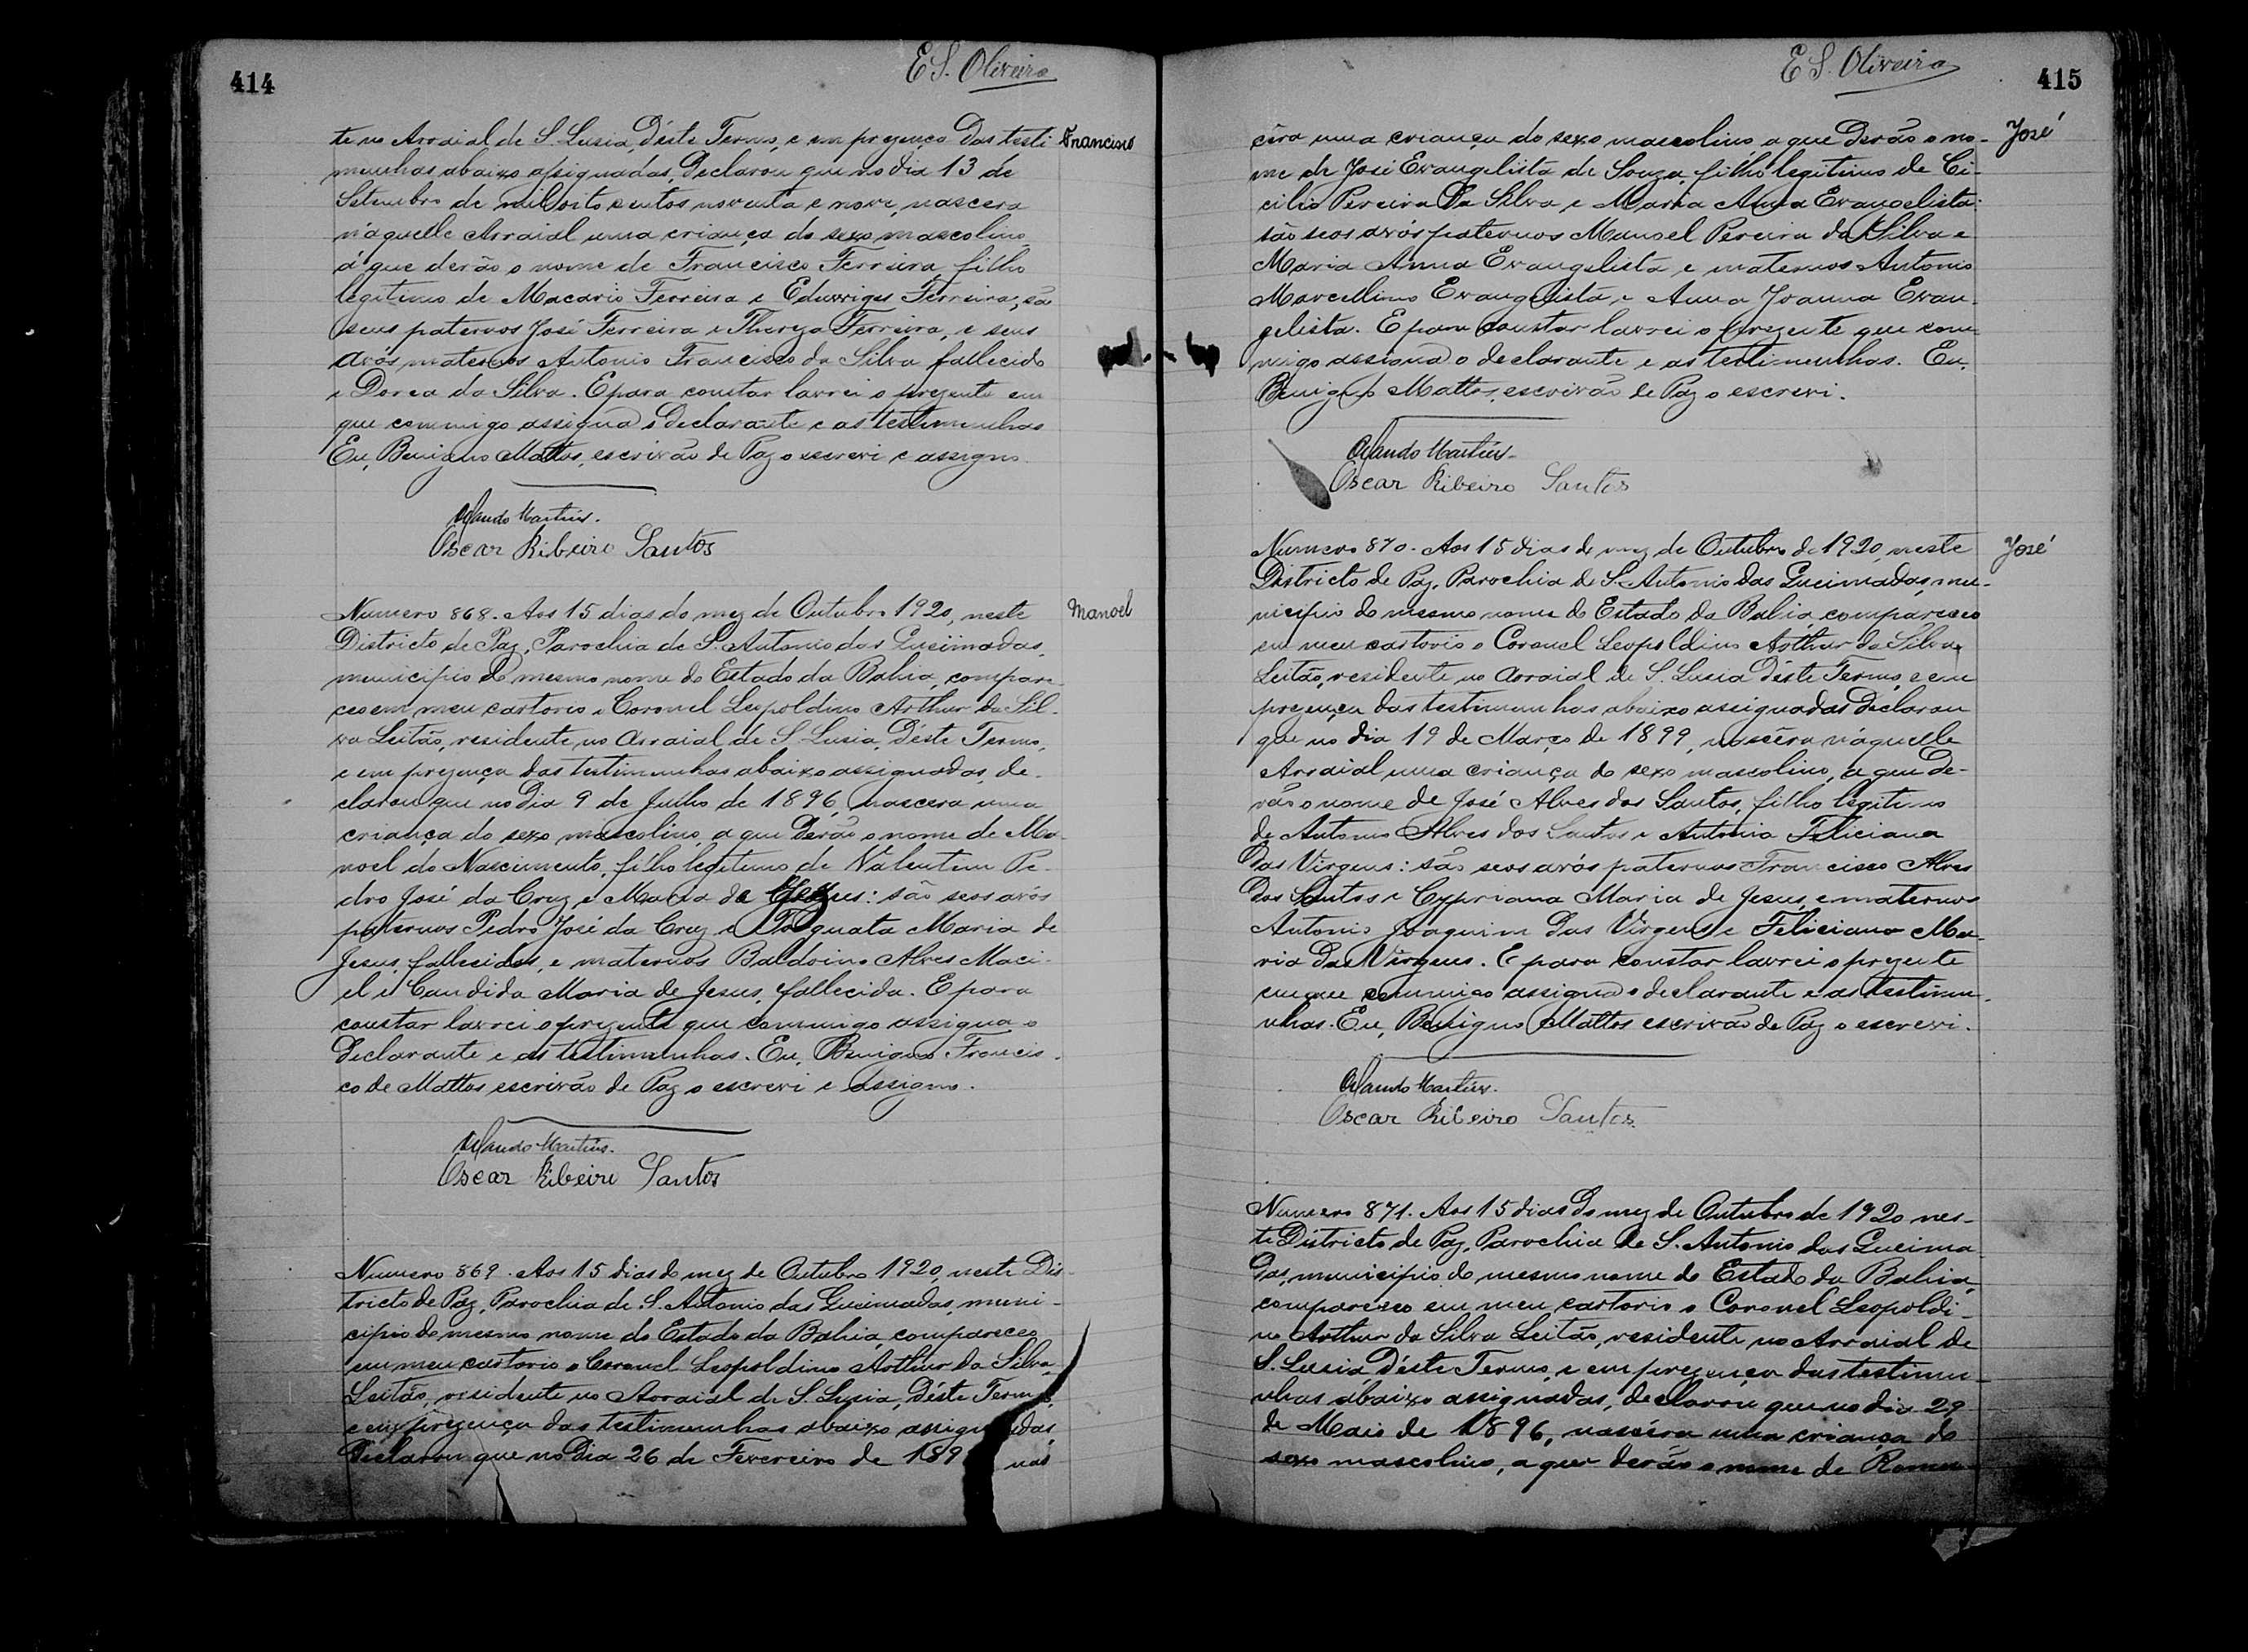 414
E S. Oliveira
te no Arraial de S. Lusia, Déste Termo, e em prezença das testi
Francisco
munhas abaixo assignadas, Declarou que no dia 13 de
Setembro de mil oito centos noventa e nove, nascera
n'aquelle Arraial uma criança do sexo mascolino
á que derão o nome de Francisco Ferreira, filho
legitimo de Macario Ferreira e Eduvirges Ferreira; são
seus paternos José Ferreira e Thereza Ferreira, e seus
avós maternos Antonio Francisco da Silva fallecido
e Dorea da Silva. E para constar lavrei o prezente em
que commigo assigna o declarante e as testimunhas
Eu, Benigno Mattos, escrivão de Paz o escrevi e assigno.
Orlando Martins.
Oscar Ribeiro Santos
Numero 868. Aos 15 dias do mez de Outubro 1920, neste
Manoel
Districto de Paz, Parochia de S. Antonio das Queimadas,
municipio do mesmo nome do Estado da Bahia, compare
ceo em meu cartorio o Coronel Leopoldino Arthur da Sil-
va Leitão, residente no arraial de S. Lusia, Déste Termo,
e em prezença das testimunhas abaixo assignadas, de-
clarou que no dia 9 de Julho de 1896, nascera uma
criança do sexo mascolino, a que Derão o nome de Ma-
noel do Nascimento, filho legitimo de Valentim Pe-
dro José da Cruz e Maria de Jezus: são seos avós
paternos Pedro José da Cruz e Maria de
Jesus, fallecidos, e maternos Baldoino Alves Maci-
el e Candida Maria de Jesus, fallecida. E para
constar lavrei o prezente que commigo assigna o
Declarante e as testimunhas. Eu, Benigno Francis-
co de Mattos escrivão de Paz o escrevi e assigno.
Orlando Martins.
Oscar Ribeiro Santos
Numero 869. Aos 15 dias do mez de Outubro 1920, neste Dis-
tricto de Paz, Parochia de S. Antonio das Queimadas, muni-
cipio do mesmo nome do Estado da Bahia, compareceo
em meu cartorio o Coronel Leopoldino Arthur da Silva
Leitão, residente no Arraial de S. Lusia, Déste Termo,
e em prezença das testimunhas abaixo assignadas,
Declarou que no Dia 26 de Fevereiro de 189 nas
415
E S. Oliveira
cêra uma criança do sexo mascolino a que Derão o no-
José
me de José Evangelista de Souza, filho legitimo de Ci-
cilio Pereira da Silva e Maria Anna Evangelista:
são seos avós paternos Manoel Pereira da Silva e
Maria Anna Evangelista e maternos Antonio
Marcellino Evangelista e Anna Joanna Evan-
gelista. E para constar lavrei o prezente que com-
migo assigna o declarante e as testimunhas. Eu,
Benigno Mattos, escrivão de Paz o escrevi.
Orlando Martins.
Oscar Ribeiro Santos
Numero 870. Aos 15 dias do mez de Outubro de 1920, neste
José
Districto de Paz, Parochia de S. Antonio das Queimadas, mu-
nicipio do mesmo nome do Estado da Bahia, compareceo
em meu cartorio o Coronel Leopoldino Arthur da Silva
Leitão, residente no arraial de S. Lusia Déste Termo, e em
prezença das testimunhas abaixo assignadas Declarou
que no dia 19 de Março de 1899, nascêra n'aquelle
Arraial, uma criança do sexo mascolino, a que de-
rão o nome de José Alves dos Santos, filho legitimo
de Antonio Alves dos Santos e Antonia Feliciana
das Virgens: são seos avós paternos Francisco Alves
dos Santos e Cypriana Maria de Jesus, e maternos
Antonio Joaquim das Virgens e Feliciana Ma-
ria das Virgens. E para constar lavrei o prezente
em que commigo assigna o declarante e as testimu-
nhas. Eu, Benigno Mattos escrivão de Paz o escrevi.
Orlando Martins.
Oscar Ribeiro Santos.
Numero 871. Aos 15 dias do mez de Outubro de 1920 nes-
te Districto de Paz, Parochia de S. Antonio das Queima
das, municipio do mesmo nome do Estado da Bahia,
compareceo em meu cartorio o Coronel Leopoldi-
no Arthur da Silva Leitão, residente no Arraial de
S. Lusia, Déste Termo, e em prezença das testimu-
nhas abaixo assignadas, declarou que no dia 29
de Maio de 1896, nascêra uma criança do
sexo mascolino, a que derão o nome de Romu